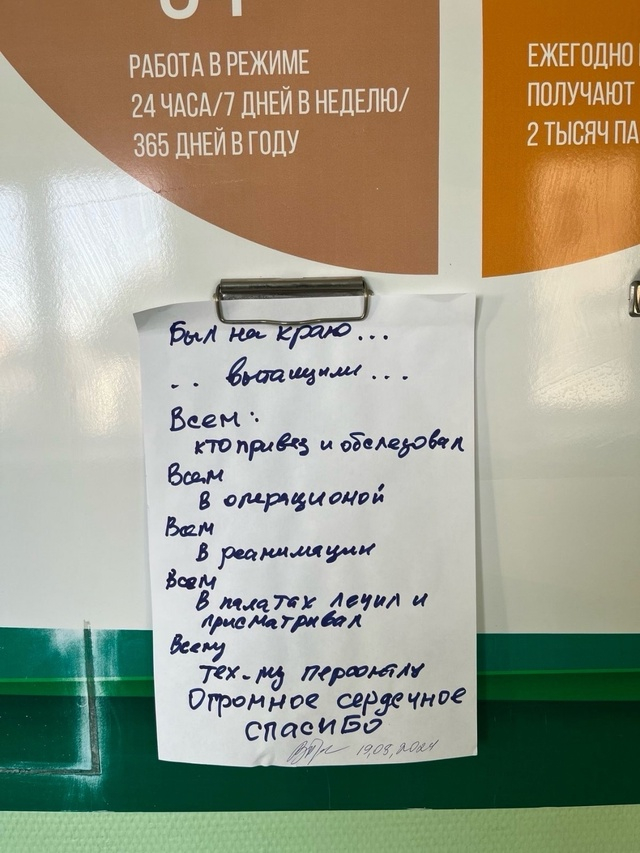 РАБОТА В РЕЖИМЕ
24 ЧАСА/7 ДНЕЙ В НЕДЕЛЮ/
365 ДНЕЙ В ГОДУ
ЕЖЕГОДНО
ПОЛУЧАЮТ
2 ТЫСЯЧ ПА
Был на краю...
.. вытащили...
Всем:
кто привез и обследовал
Всем
в операционой
Всем
в реанимации
Всем
в палатах лечил и
присматривал
Всему
тех-му персоналу
Огромное сердечное
спасибо
19,03,2024